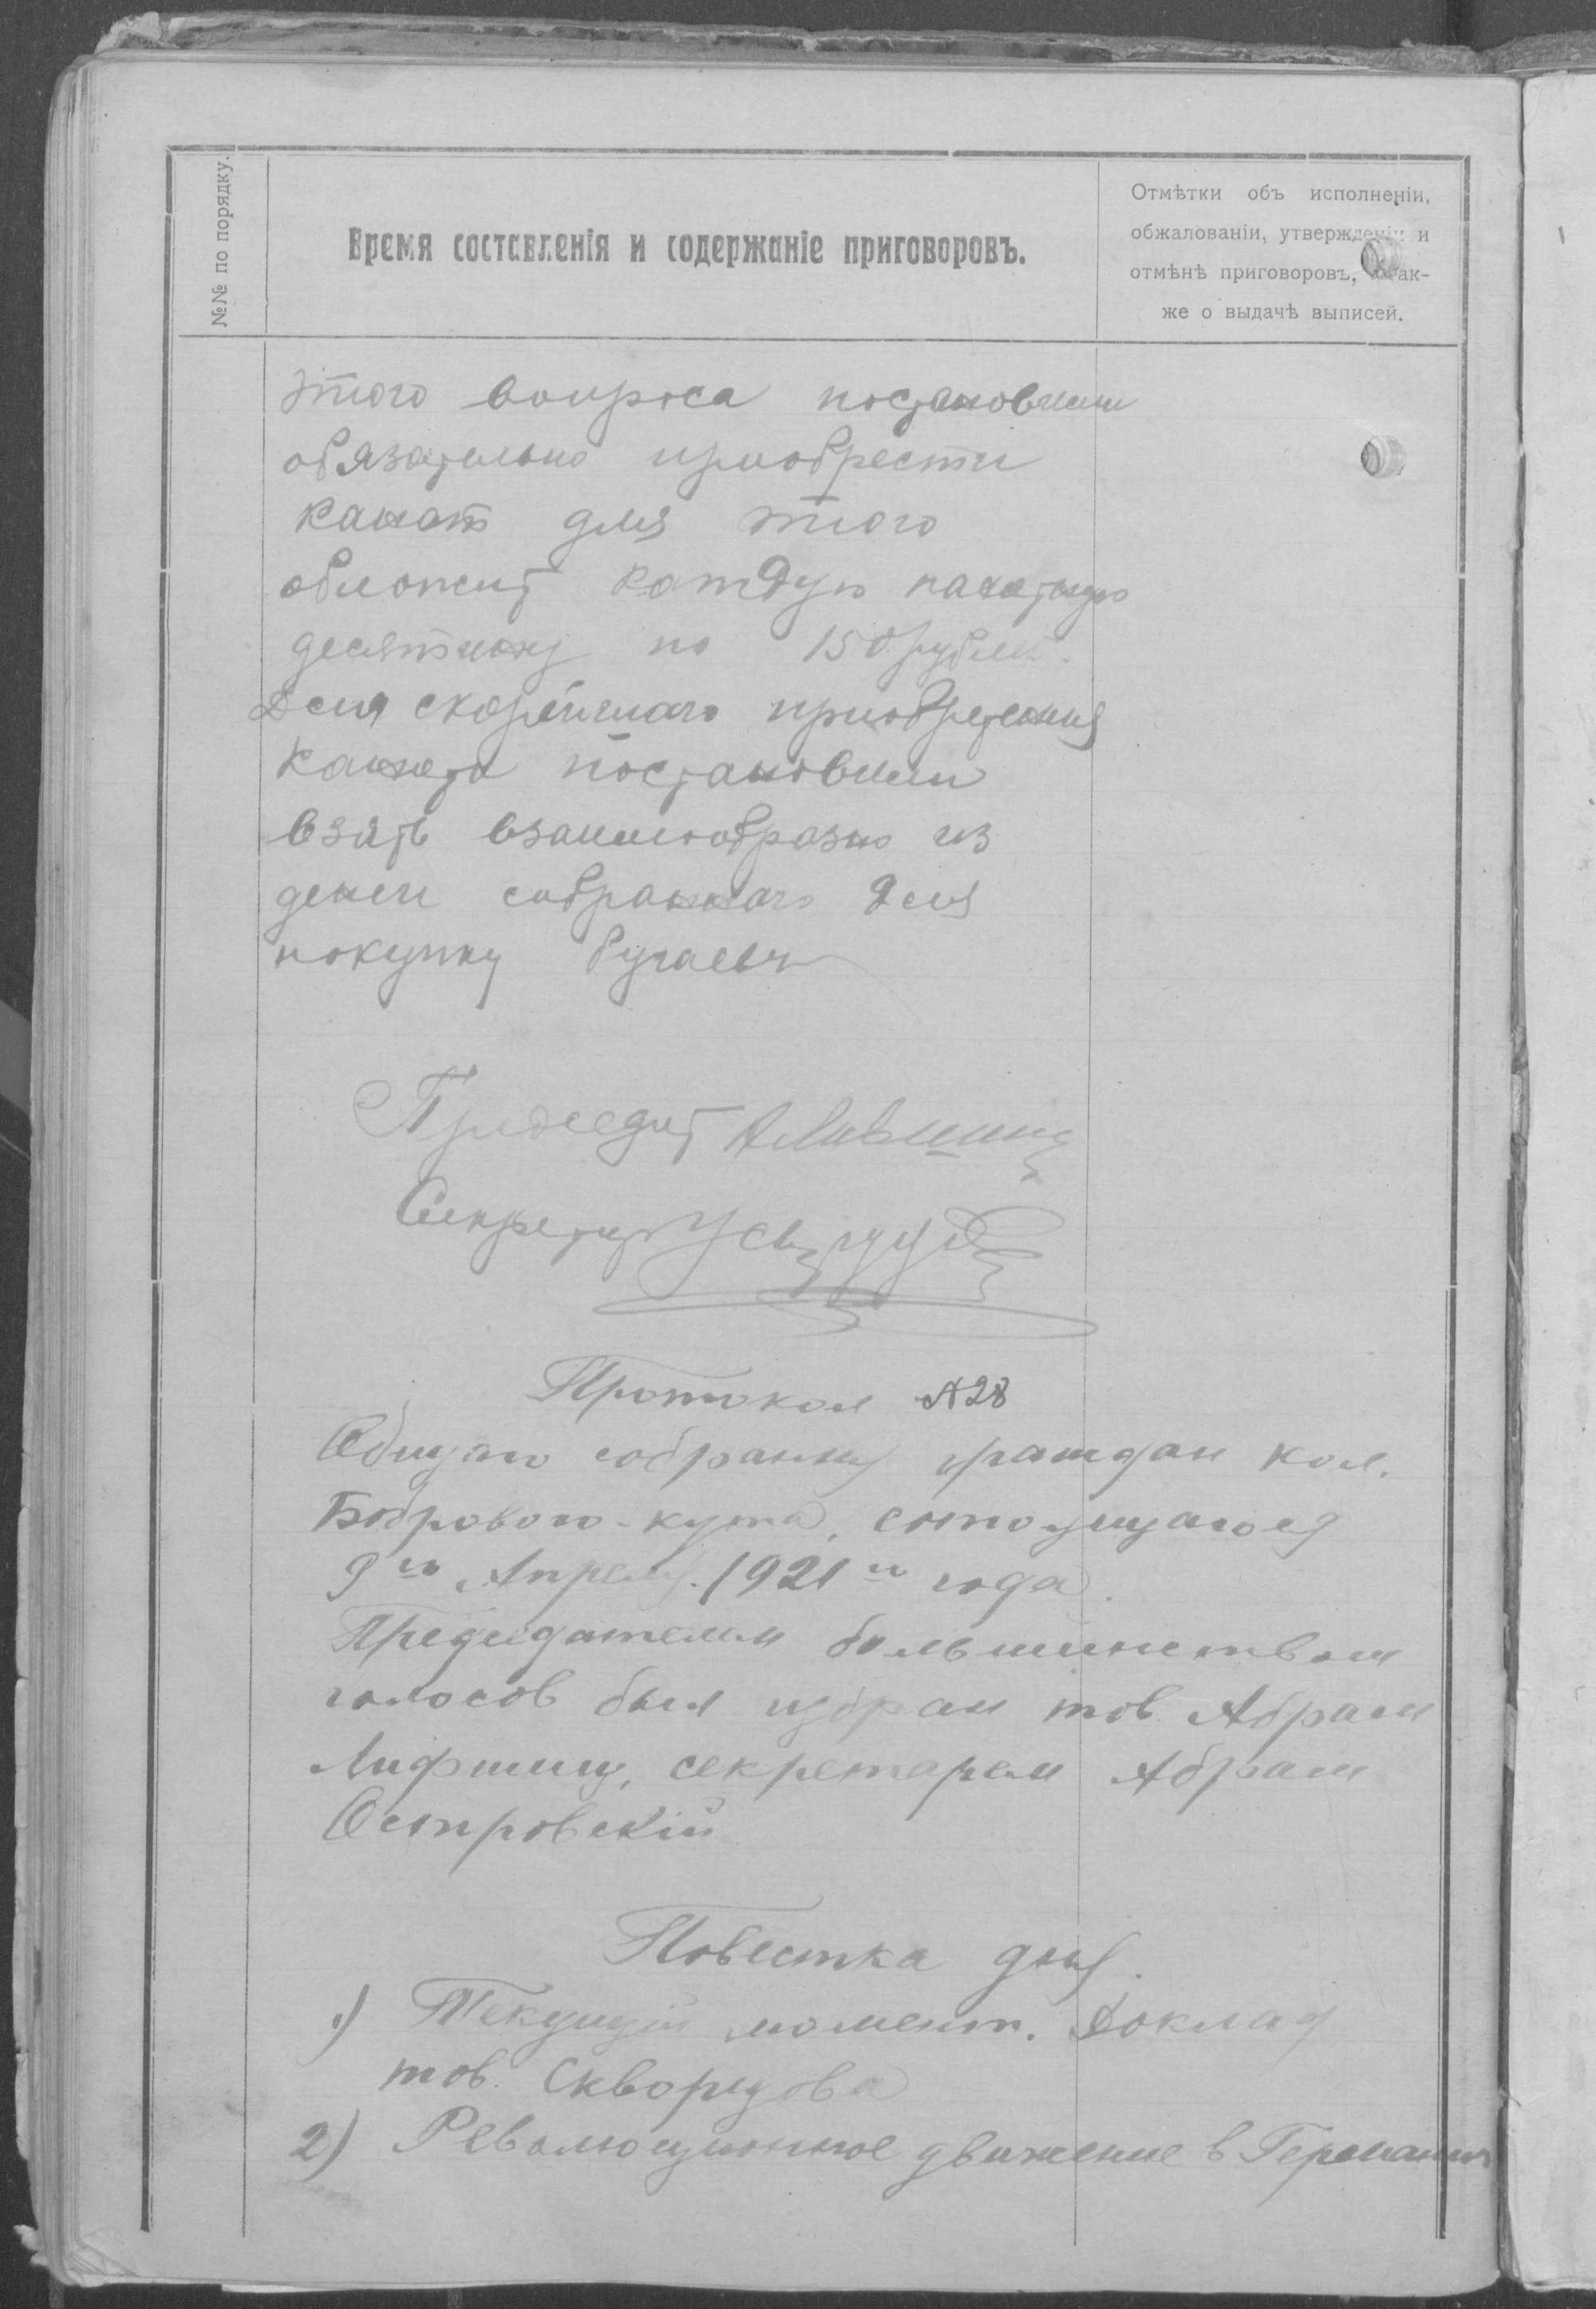 №№ по порядку.
Время составленія и содержаніе приговоровъ.
Отмѣтки объ исполненіи,
обжалованіи, утвержденіи и
отмѣнѣ приговоровъ, а так-
же о выдачѣ выписей.
этого вопроса постановили
обязательно приобрести
канат для этого
обложит каждую пахатную
десятину по 150 рублей.
Для скорейшаго приобретения
каната постановили
взять взаимообразно из
денег собраннаго для
покупку бугаевъ
Председат А Лившиц
Секретар
Протокол № 28
Общаго собрания граждан кол.
Бобрового-кута, состоящагося
9го Апреля 1921го года.
Председателем большинством
голосов был избран тов. Абрам
Лифшиц, секретарем Абрам
Островскій
Повестка дня.
1) Текущій момент. Доклад
тов. Скворцова
2) Революционное движение в Германии